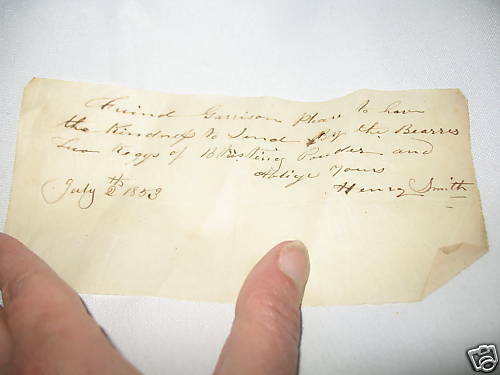 Friend Garrison pleas to have
the Kindness to Send By the Bearres
Two Keggs of Blasting Powder and
Oblige Yours
July 2th 1853 Henry Smith